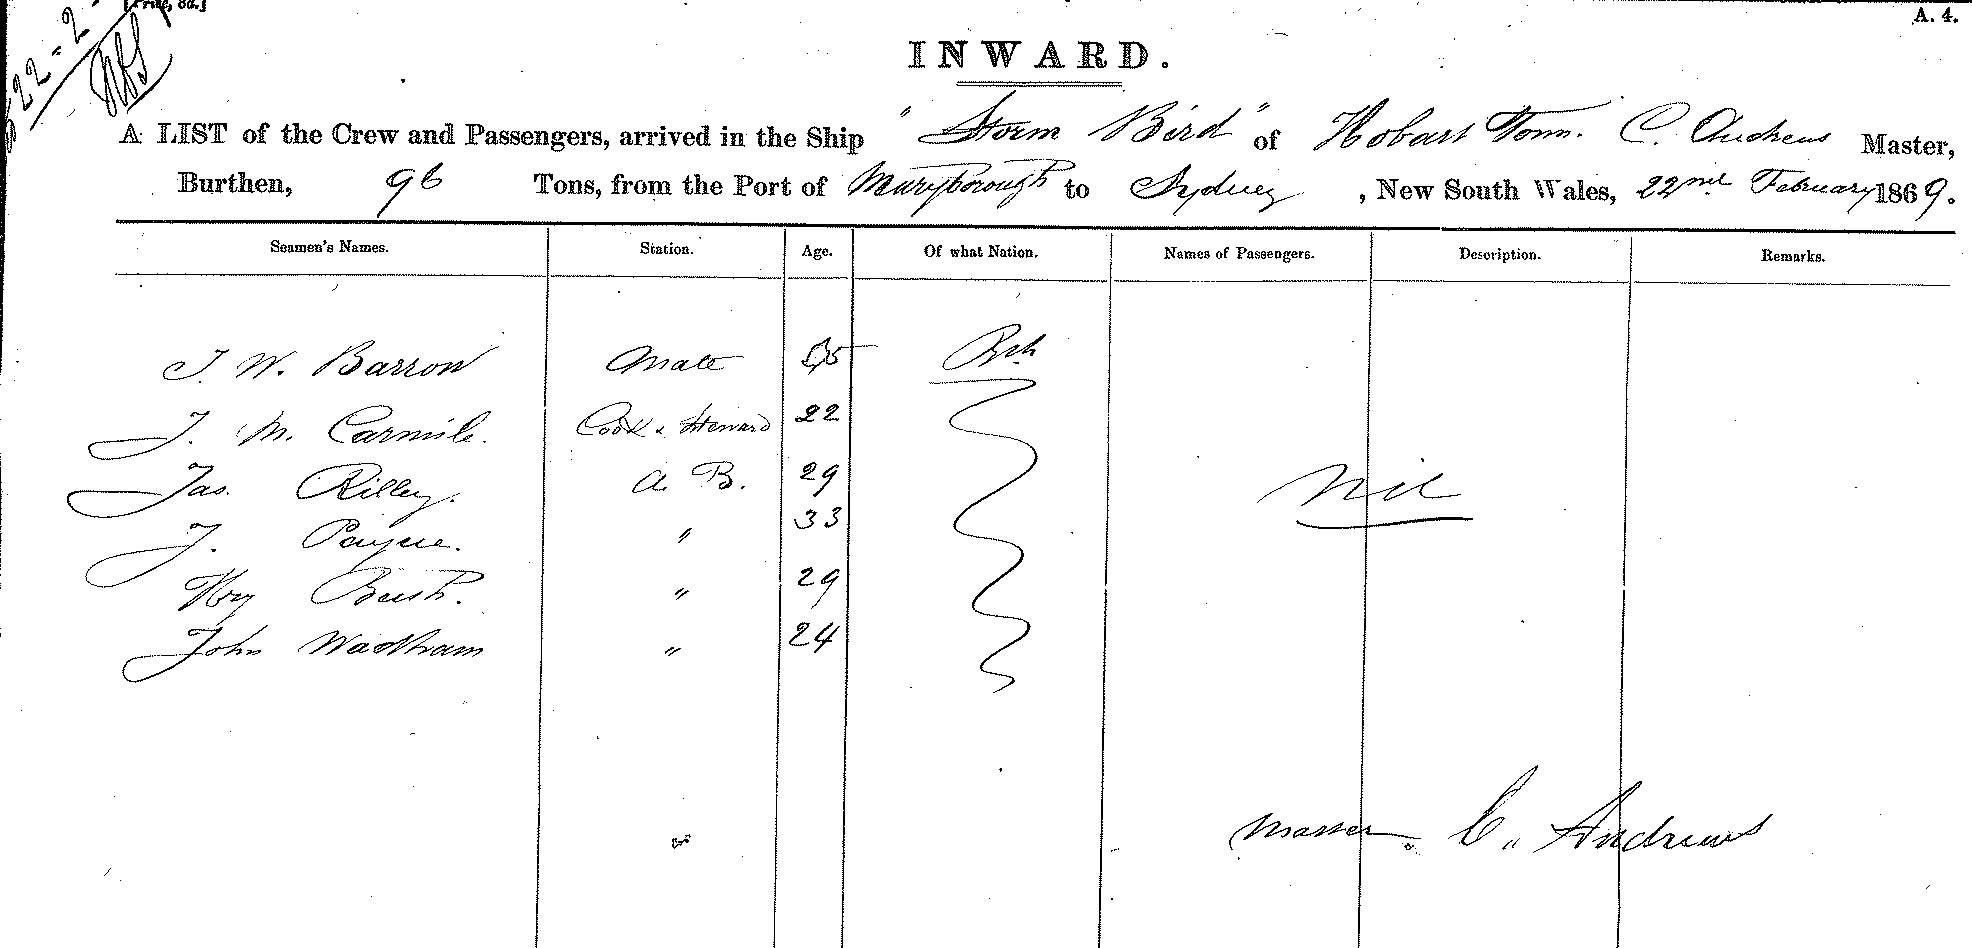 [Price, 6d.]
A. 4.
22-2-
INWARD.
A LIST of the Crew and Passengers, arrived in the Ship "Storm Bird" of Hobart Town. C. Andrews Master,
Burthen, 96 Tons, from the Port of Maryborough to Sydney, New South Wales, 22nd February 1869.
Seamen's Names. Station. Age. Of what Nation. Names of Passengers. Description. Remarks.
J. W. Barron Mate Bsh
J. M. Carmile. Cook & Steward 22
Jas. Rilley. A B. 29
Nil
J. Payne. " 33
Hry Bush. " 29
John Wadham " 24
Master. C. Andrews